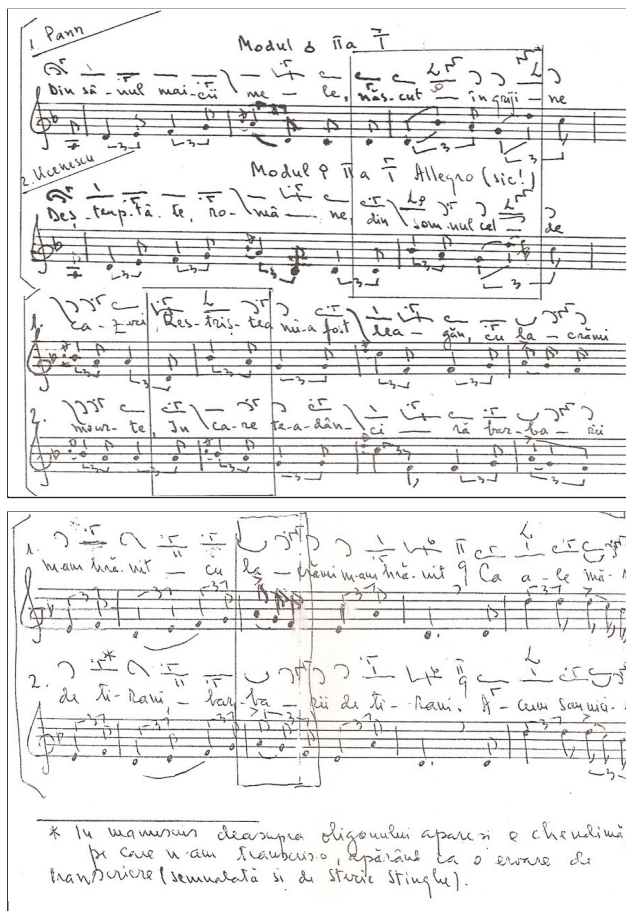 1. Pann
Modul 6 IIa
Din sâ-nul mai-cii me-le, năs-cut — în griji-ne
2. Ucenescu
Modul IIa Allegro (sic!)
Deş-teap-tă-te, ro-mâ-ne, din som-nul cel — de
1.
ca-zuri, Res-triş-tea mi-a fost lea-găn, cu la-crămi
2.
moar-te, In ca-re te-a-dân-ci-ră bar-ba-rii
1.
m-am hră-nit — cu la-crămi m-am hră-nit Ca a-le mă-
2.
de ti-rani, — bar-ba-rii de ti-rani. A-cum sau
* In manuscris deasupra oligonului apare si o chendimă
pe care n-am transcris-o, apărând ca o eroare de
transcriere (semnalată si de Steric Stinghe).